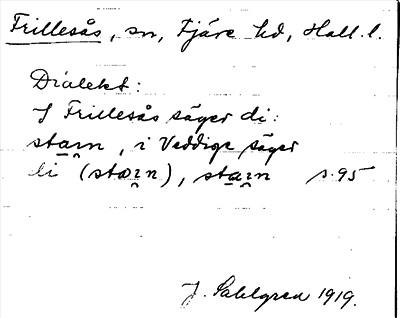 Frillesås, sn, Fjäre hd, Hall. l.
Dialekt:
I Frillesås säger di:
stąɪn, i Veddige säger
li (stœɪn), stąɪn s. 95
J. Sahlgren 1919.